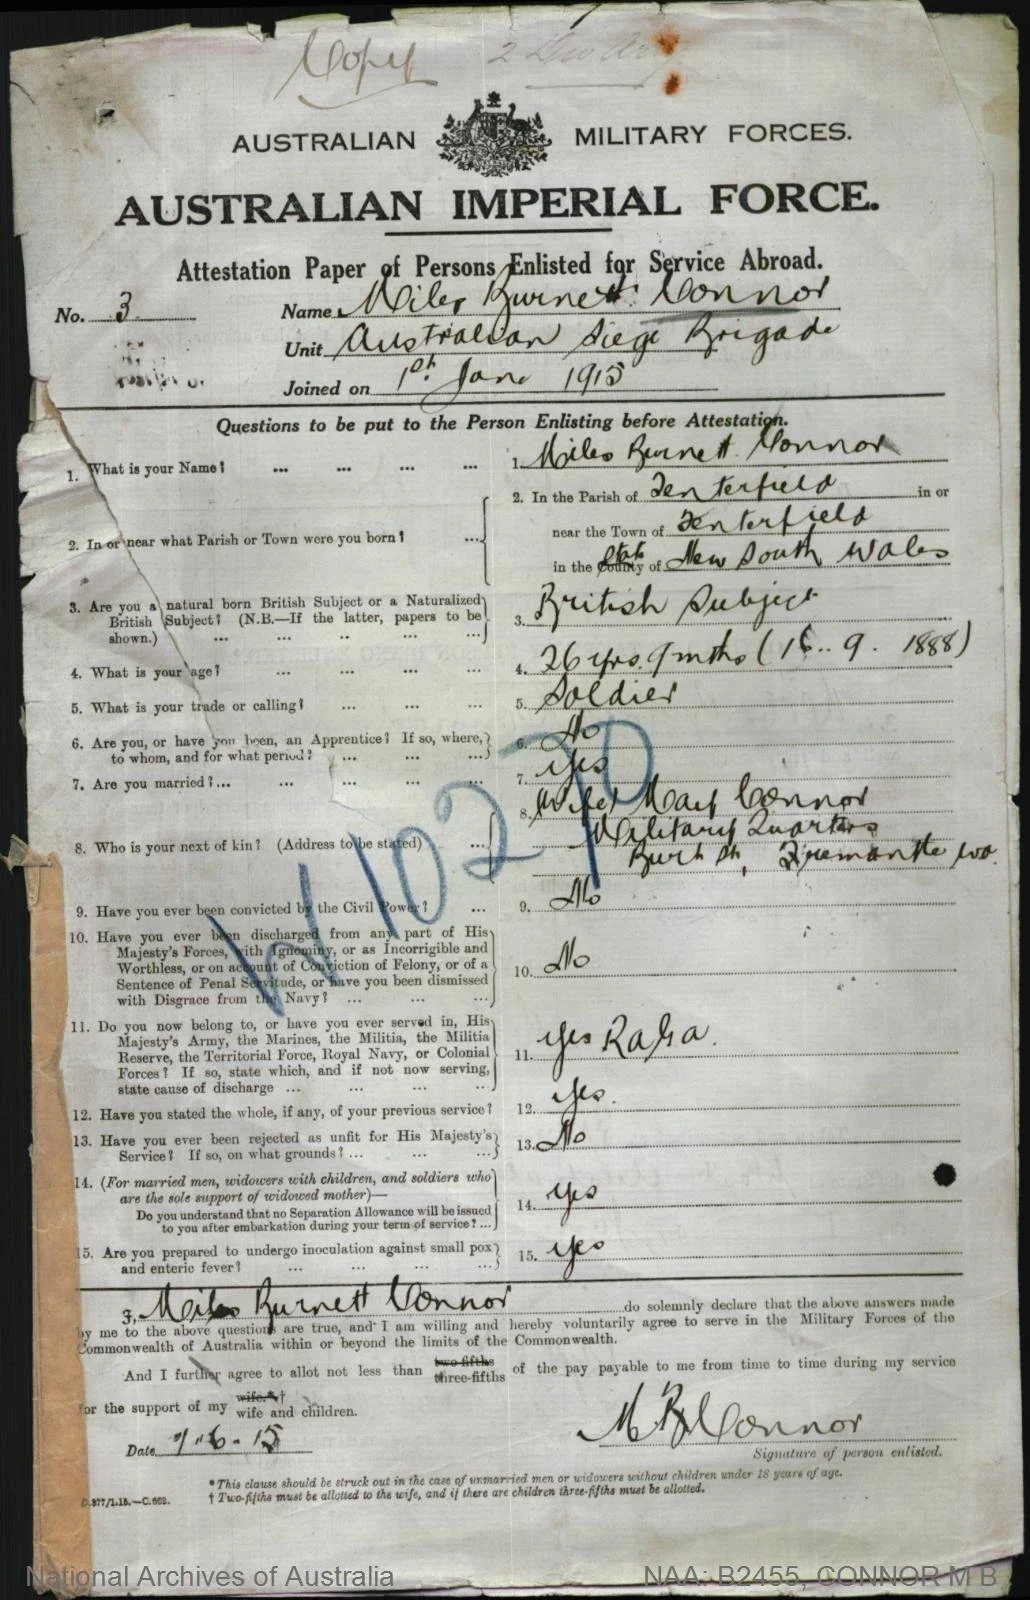 Copy
AUSTRALIAN MILITARY FORCES.
AUSTRALIAN IMPERIAL FORCE.
Attestation Paper of Persons Enlisted for Service Abroad.
No. 3 Name Miles Burnett Connor
Unit Australian Siege Brigade
Joined on 1st June 1915
Questions to be put to the Person Enlisting before Attestation.
1. What is your Name? ... ... ... ... 1. Miles Burnett Connor
2. In or near what Parish or Town were you born? ... 2. In the Parish of Tenterfield in or
near the Town of Tenterfield
in the County State of New South Wales
3. Are you a natural born British Subject or a Naturalized
British Subject? (N.B.—If the latter, papers to be
shown.) ... ... .. ... ... 3. British Subject
4. What is your age? ... ... ... ... 4. 26 yrs. 9 mths (16.. 9. 1888)
5. What is your trade or calling? ... ... ... 5. Soldier
6. Are you, or have you been, an Apprentice? If so, where,
to whom, and for what period? ... ... ... 6. No
7. Are you married? ... ... ... ... 7. Yes
8. Who is your next of kin? (Address to be stated) ... 8. (Wife) Mary Connor
Military Quarters
Burt St, Fremantle WA.
9. Have you ever been convicted by the Civil Power? ... 9. No
10. Have you ever been discharged from any part of His
Majesty's Forces, with Ignominy, or as Incorrigible and
Worthless, or on account of Conviction of Felony, or of a
Sentence of Penal Servitude, or have you been dismissed
with Disgrace from the Navy? ... ... ... 10. No
11. Do you now belong to, or have you ever served in, His
Majesty's Army, the Marines, the Militia, the Militia
Reserve, the Territorial Force, Royal Navy, or Colonial
Forces? If so, state which, and if not now serving,
state cause of discharge ... ... ... ... 11. Yes RAGA.
12. Have you stated the whole, if any, of your previous service? 12. Yes.
13. Have you ever been rejected as unfit for His Majesty's
Service? If so, on what grounds? ... ... ... 13. No
14. (For married men, widowers with children, and soldiers who
are the sole support of widowed mother)—
Do you understand that no Separation Allowance will be issued
to you after embarkation during your term of service? ... 14. Yes
15. Are you prepared to undergo inoculation against small pox
and enteric fever? ... ... ... ... 15. Yes
W10270
I, Miles Burnett Connor do solemnly declare that the above answers made
by me to the above questions are true, and I am willing and hereby voluntarily agree to serve in the Military Forces of the
Commonwealth of Australia within or beyond the limits of the Commonwealth.
And I further agree to allot not less than two-fifths three-fifths of the pay payable to me from time to time during my service
for the support of my wife.*† wife and children.
Date 1.6.15 M B Connor
Signature of person enlisted.
* This clause should be struck out in the case of unmarried men or widowers without children under 18 years of age.
† Two-fifths must be allotted to the wife, and if there are children three-fifths must be allotted.
D.377/1.15.—C.662.
National Archives of Australia NAA: B2455, CONNOR M B